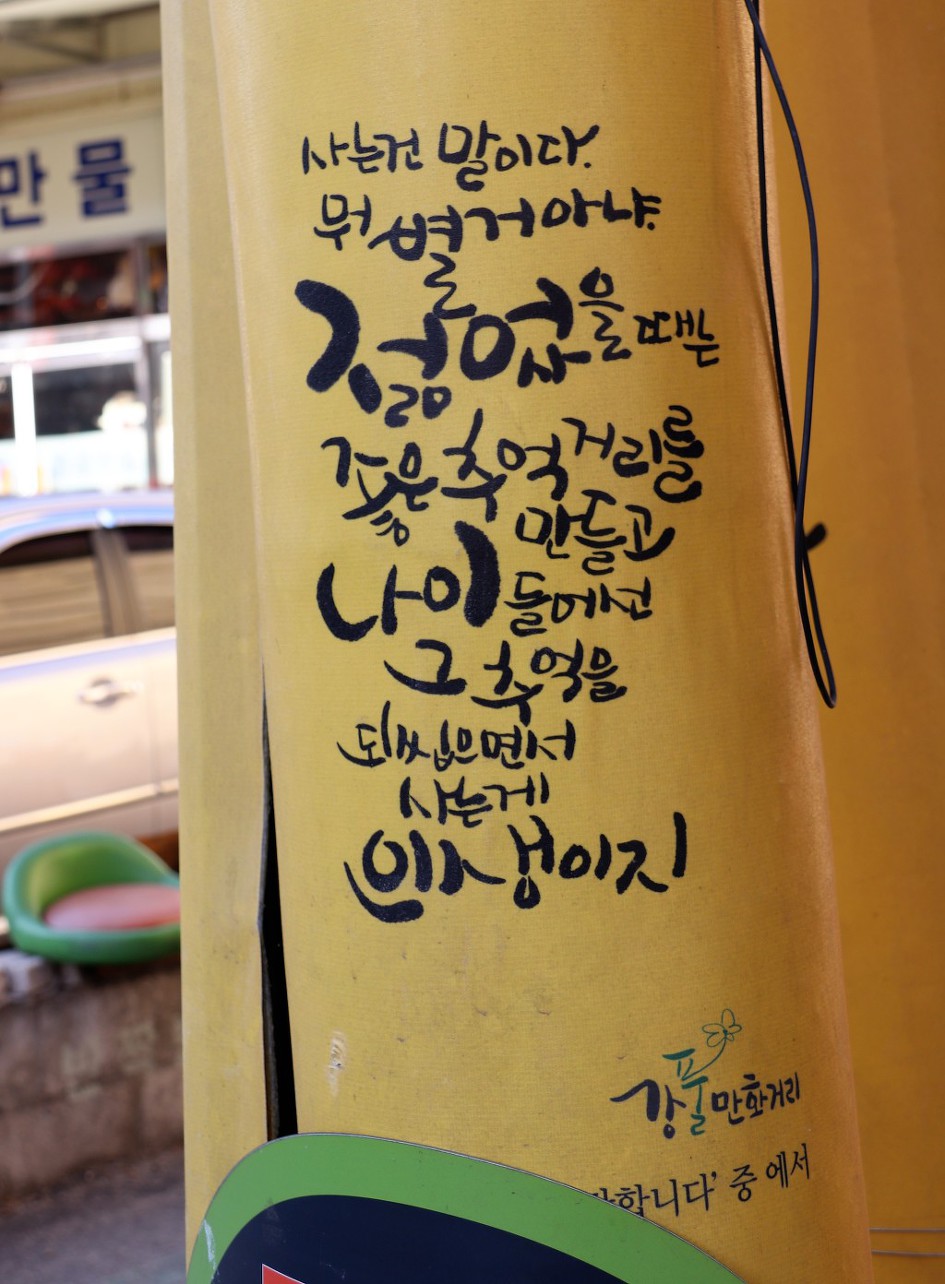 만물
사는건 말이다.
뭐 별거 아냐.
젊었을 때는
좋은 추억거리를
만들고
나이 들어선
그 추억을
되씹으면서
사는게
인생이지
강풀만화거리
합니다' 중에서